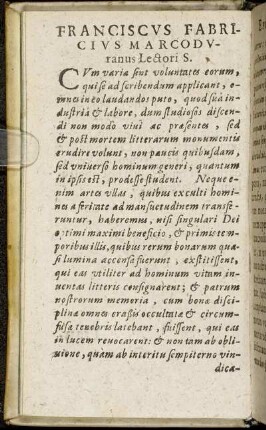 FRANCISCVS FABRI-
CIVS MARCODV-
ranus Lectori S.
CVm varia sint voluntates eorum,
qui se ad scribendum applicant, o-
mnes in eo laudandos puto, quod suâ in-
dustriâ & labore, dum studiosos discen-
di non modo viui ac præsentes, sed
& post mortem litterarum monumentis
erudire volunt, non paucis quibusdam,
sed vniuerso hominum generi, quantum
in ipsis est, prodesse student. Neque e-
nim artes vllas, quibus exculti homi-
nes a feritate ad mansuetudinem transfe-
runtur, haberemus, nisi singulari Dei
optimi maximi beneficio, & primis tem-
poribus illis, quibus rerum bonarum qua-
si lumina accensa fuerunt, exstitissent,
qui eas vtiliter ad hominum vitam in-
uentas litteris consignarent; & patrum
nostrorum memoria, cum bonæ disci-
plinæ omnes crassis occultatæ & circum-
fusæ tenebris latebant, fuissent, qui eas
in lucem reuocarent: & non tam ab obli-
uione, quàm ab interitu sempiterno vin-
dica-